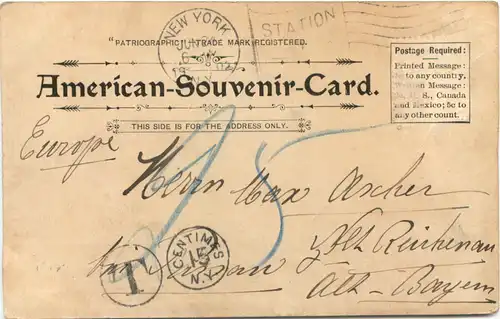 NEW YORK
STATION
N.Y.
"PATRIOGRAPHIC" TRADE MARK REGISTERED.
American-Souvenir-Card.
THIS SIDE IS FOR THE ADDRESS ONLY.
Postage Required:
Printed Message:
1c to any country.
Written Message:
2c, U. S., Canada
and Mexico; 5c to
any other count.
Europe
25
Herrn Max Ascher
Alt Reichenau
bei Passau
Alt-Bayern
T
CENTIMES
15
N.Y.